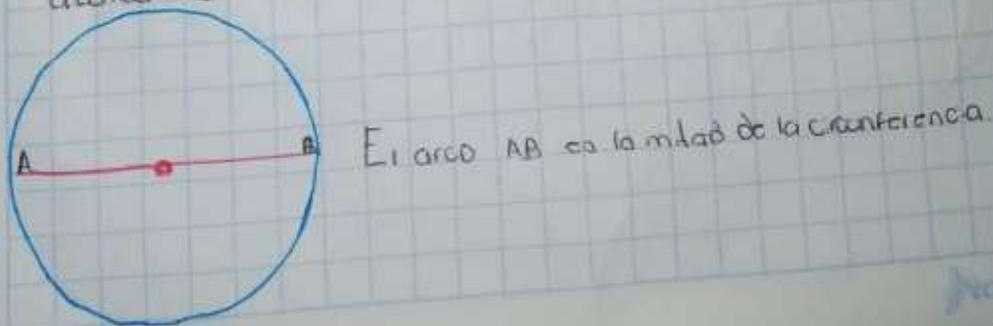 A
B
El arco AB es la mitad de la circunferencia.